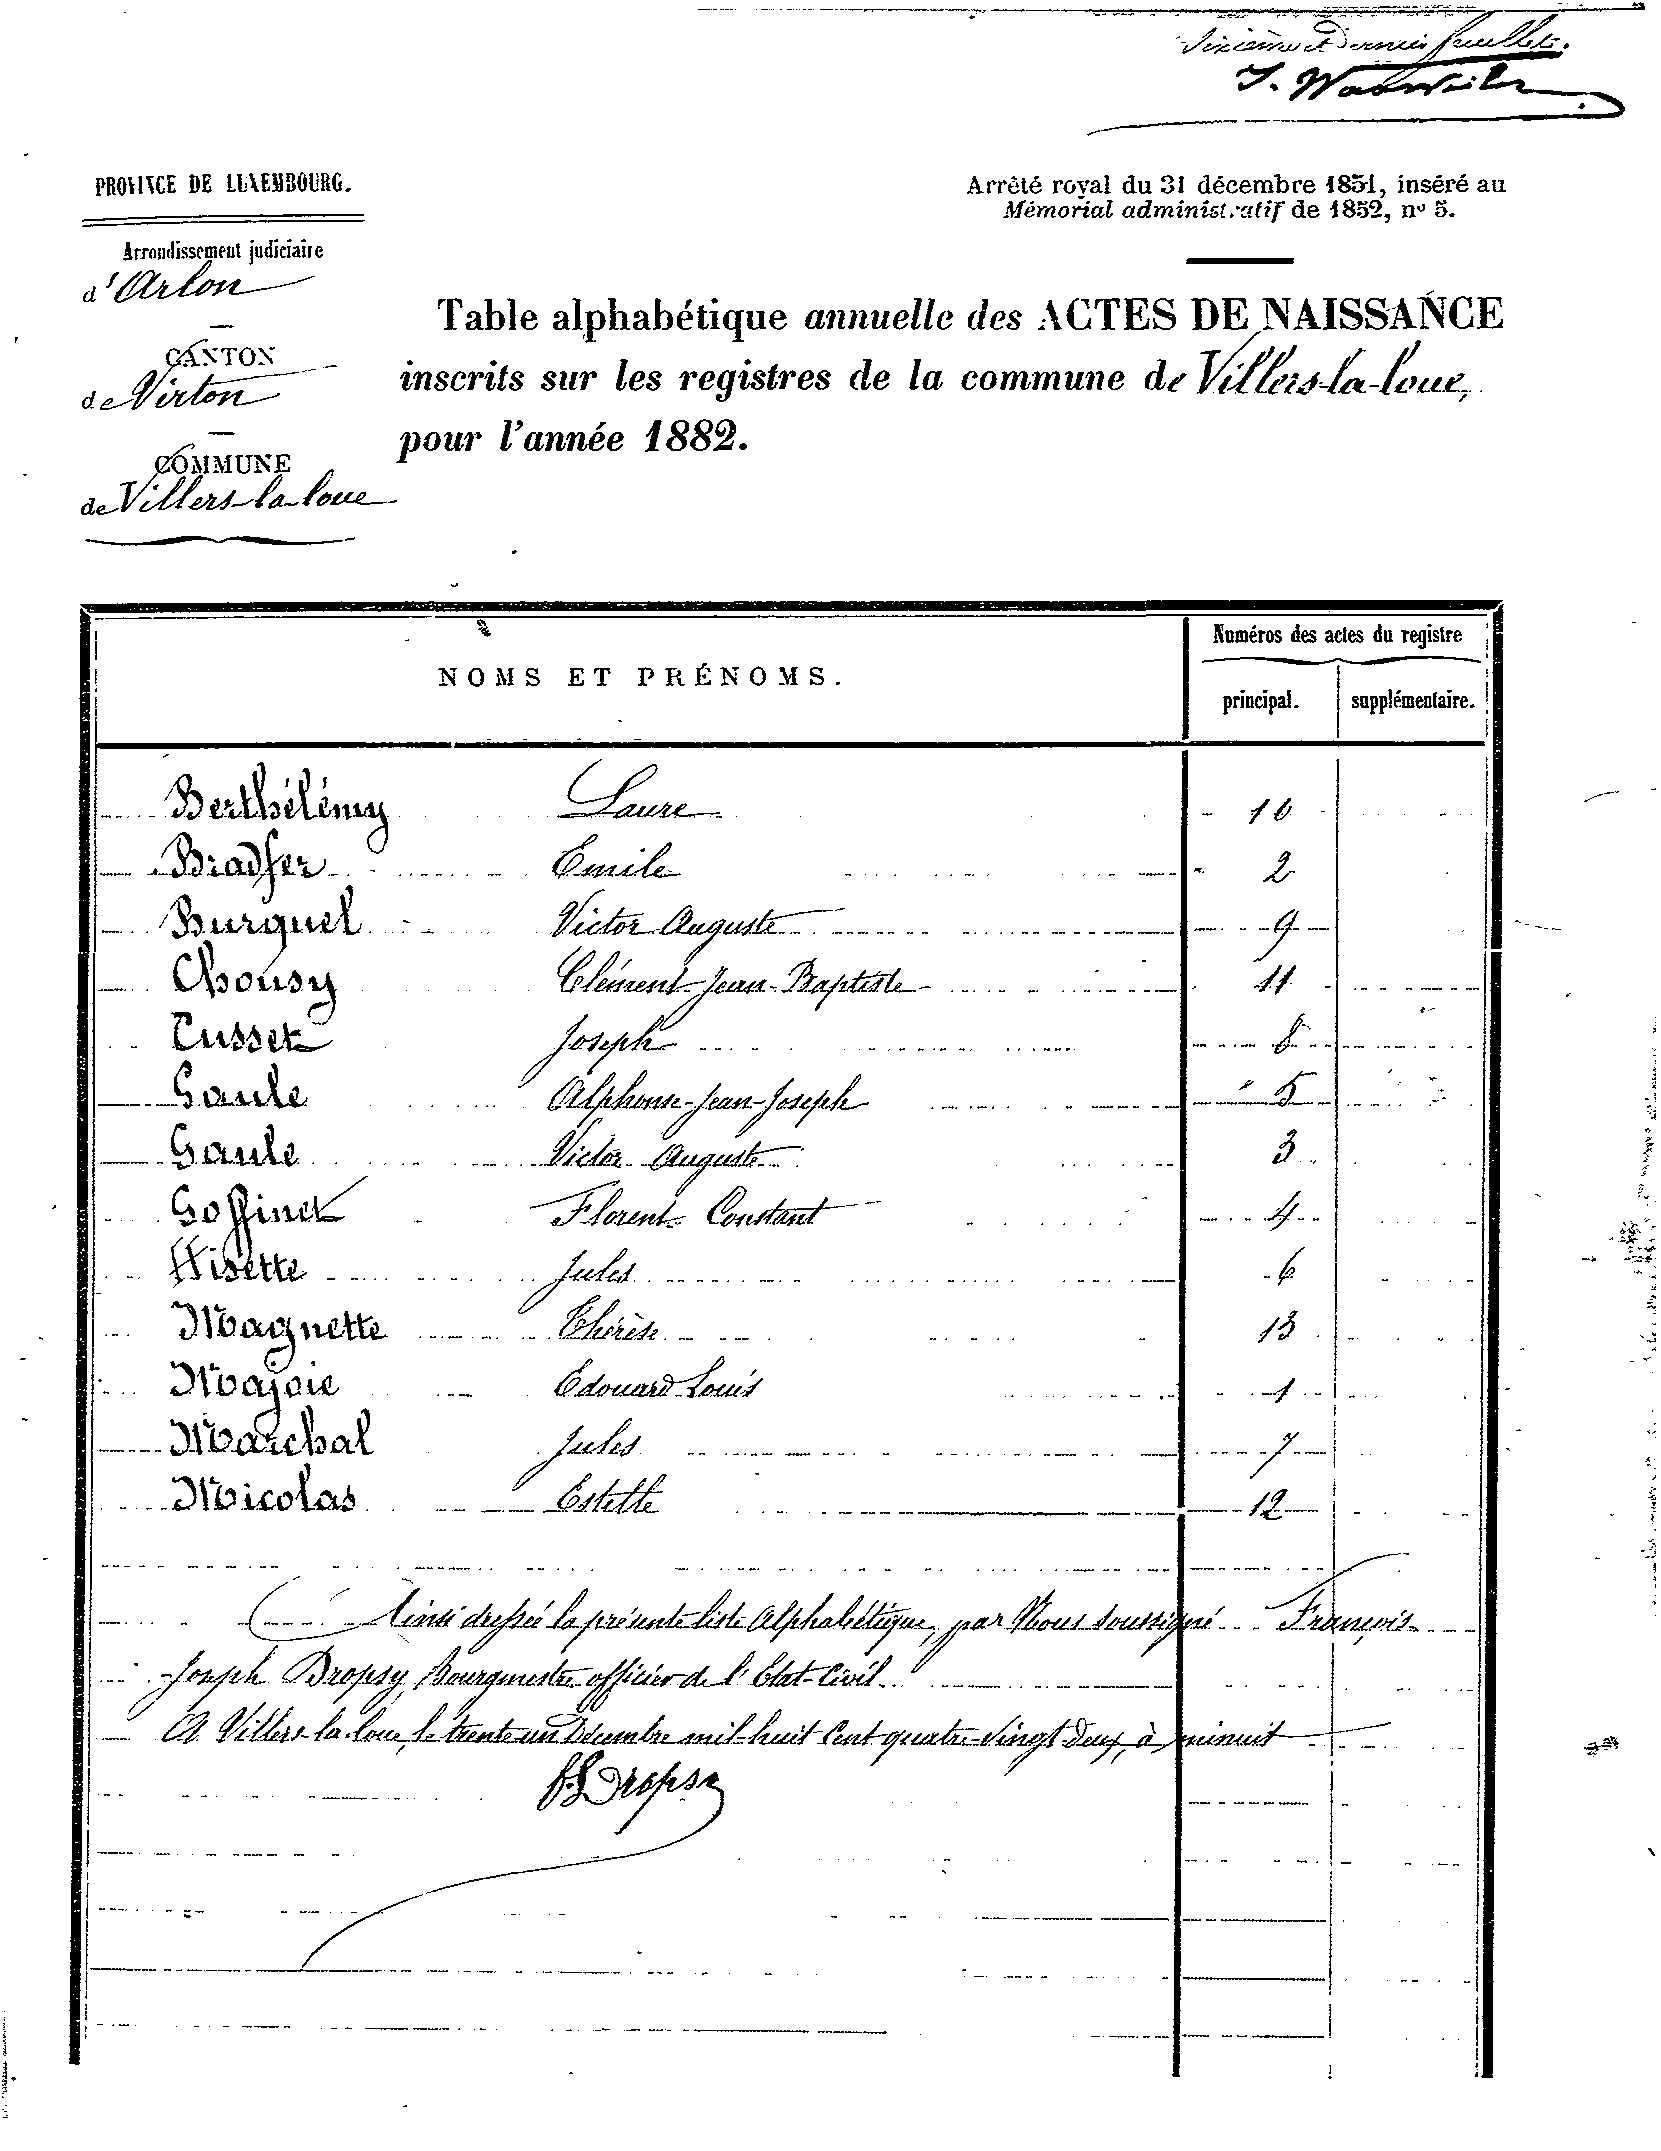 Sixième et dernier feuillet.
PROVINCE DE LUXEMBOURG.
Arrondissement judiciaire
d'Arlon
CANTON
de Virton
COMMUNE
de Villers-la-loue
Arrêté royal du 31 décembre 1851, inséré au
Mémorial administratif de 1852, nº 5.
Table alphabétique annuelle des ACTES DE NAISSANCE
inscrits sur les registres de la commune de Villers-la-loue,
pour l'année 1882.
NOMS ET PRÉNOMS.
Numéros des actes du registre
principal. supplémentaire.
Berthélémy Laure 10
Bradfer Emile 2
Burquel Victor Auguste 9
Chousy Clément-Jean-Baptiste 11
Cusset Joseph 8
Gaule Alphonse-Jean-Joseph 5
Gaule Victor Auguste 3
Goffinet Florent Constant 4
Hisette Jules 6
Magnette Thérèse 13
Majoie Edouard Louis 1
Marchal Jules 7
Nicolas Estelle 12
Ainsi dressée la présente liste Alphabétique, par Nous soussigné François
Joseph Dropsy, Bourgmestre officier de l'Etat-Civil
A Villers-la-loue, le trente un Décembre mil-huit Cent quatre-vingt Deux, à minuit
FJ Dropsy